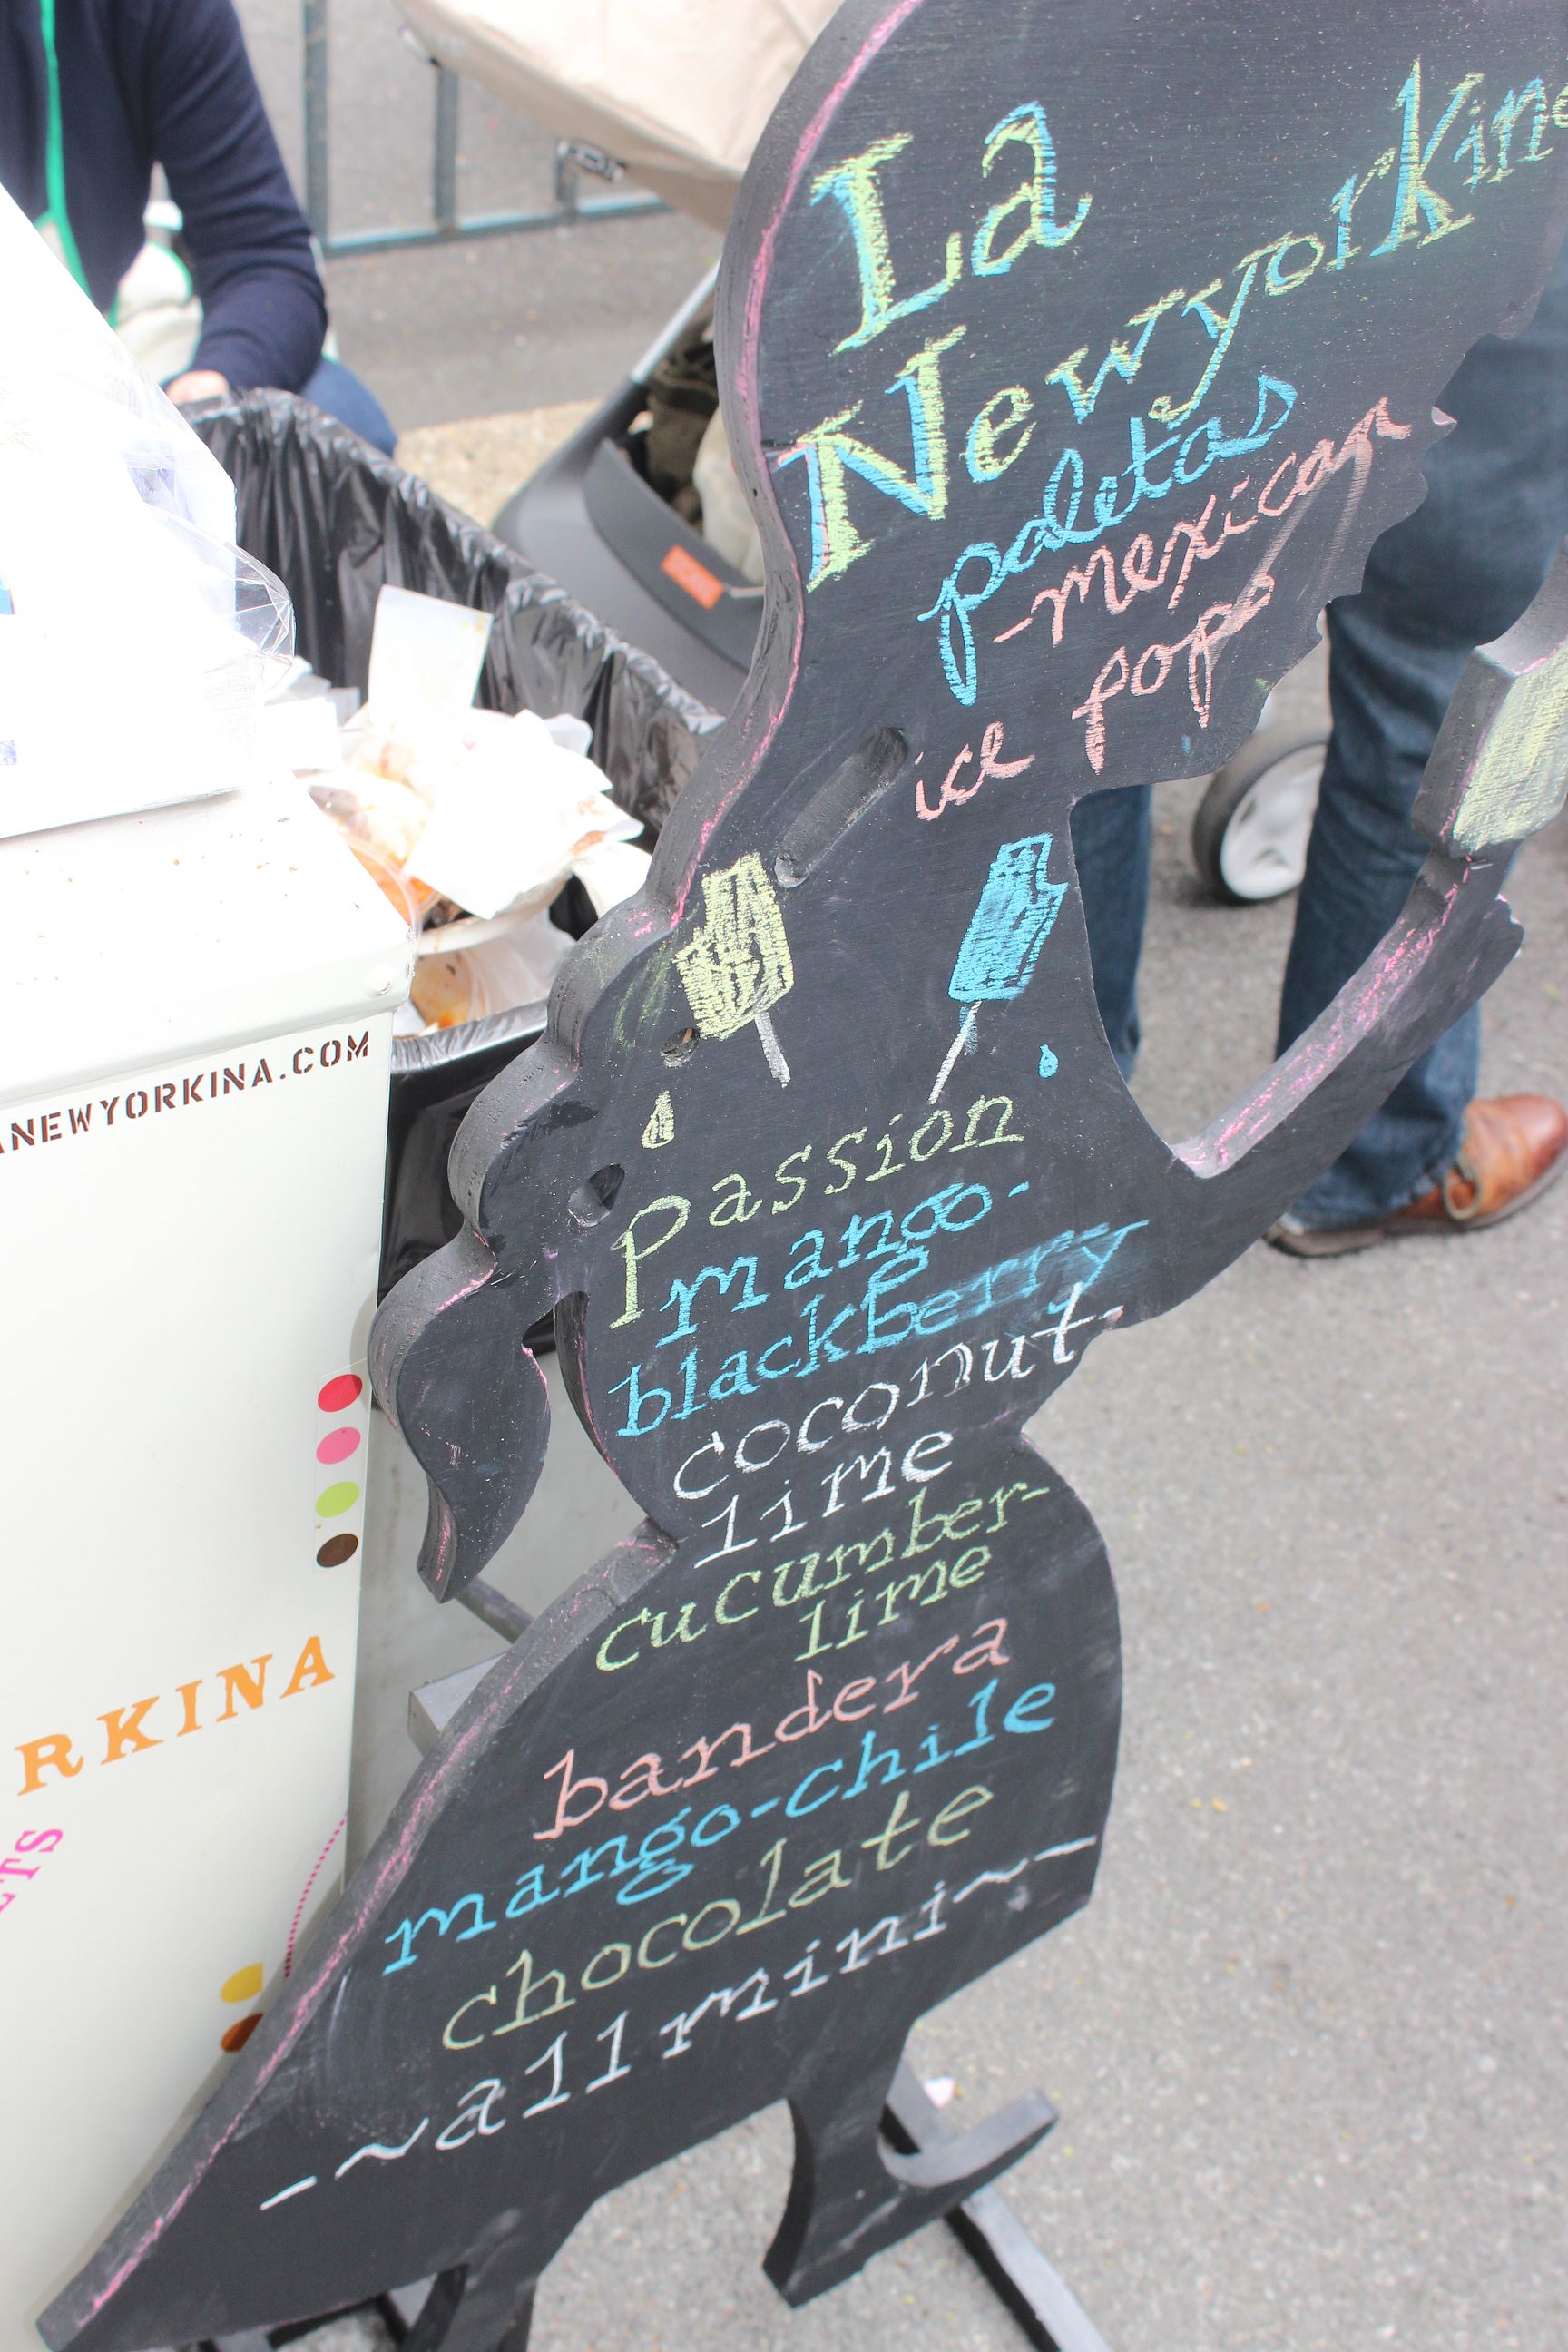 La
Newyorkina
paletas
-mexican
ice pops
passion
mango-
blackberry
coconut-
lime
cucumber-
lime
bandera
mango-chile
chocolate
-~allmini~-
ANEWYORKINA.COM
RKINA